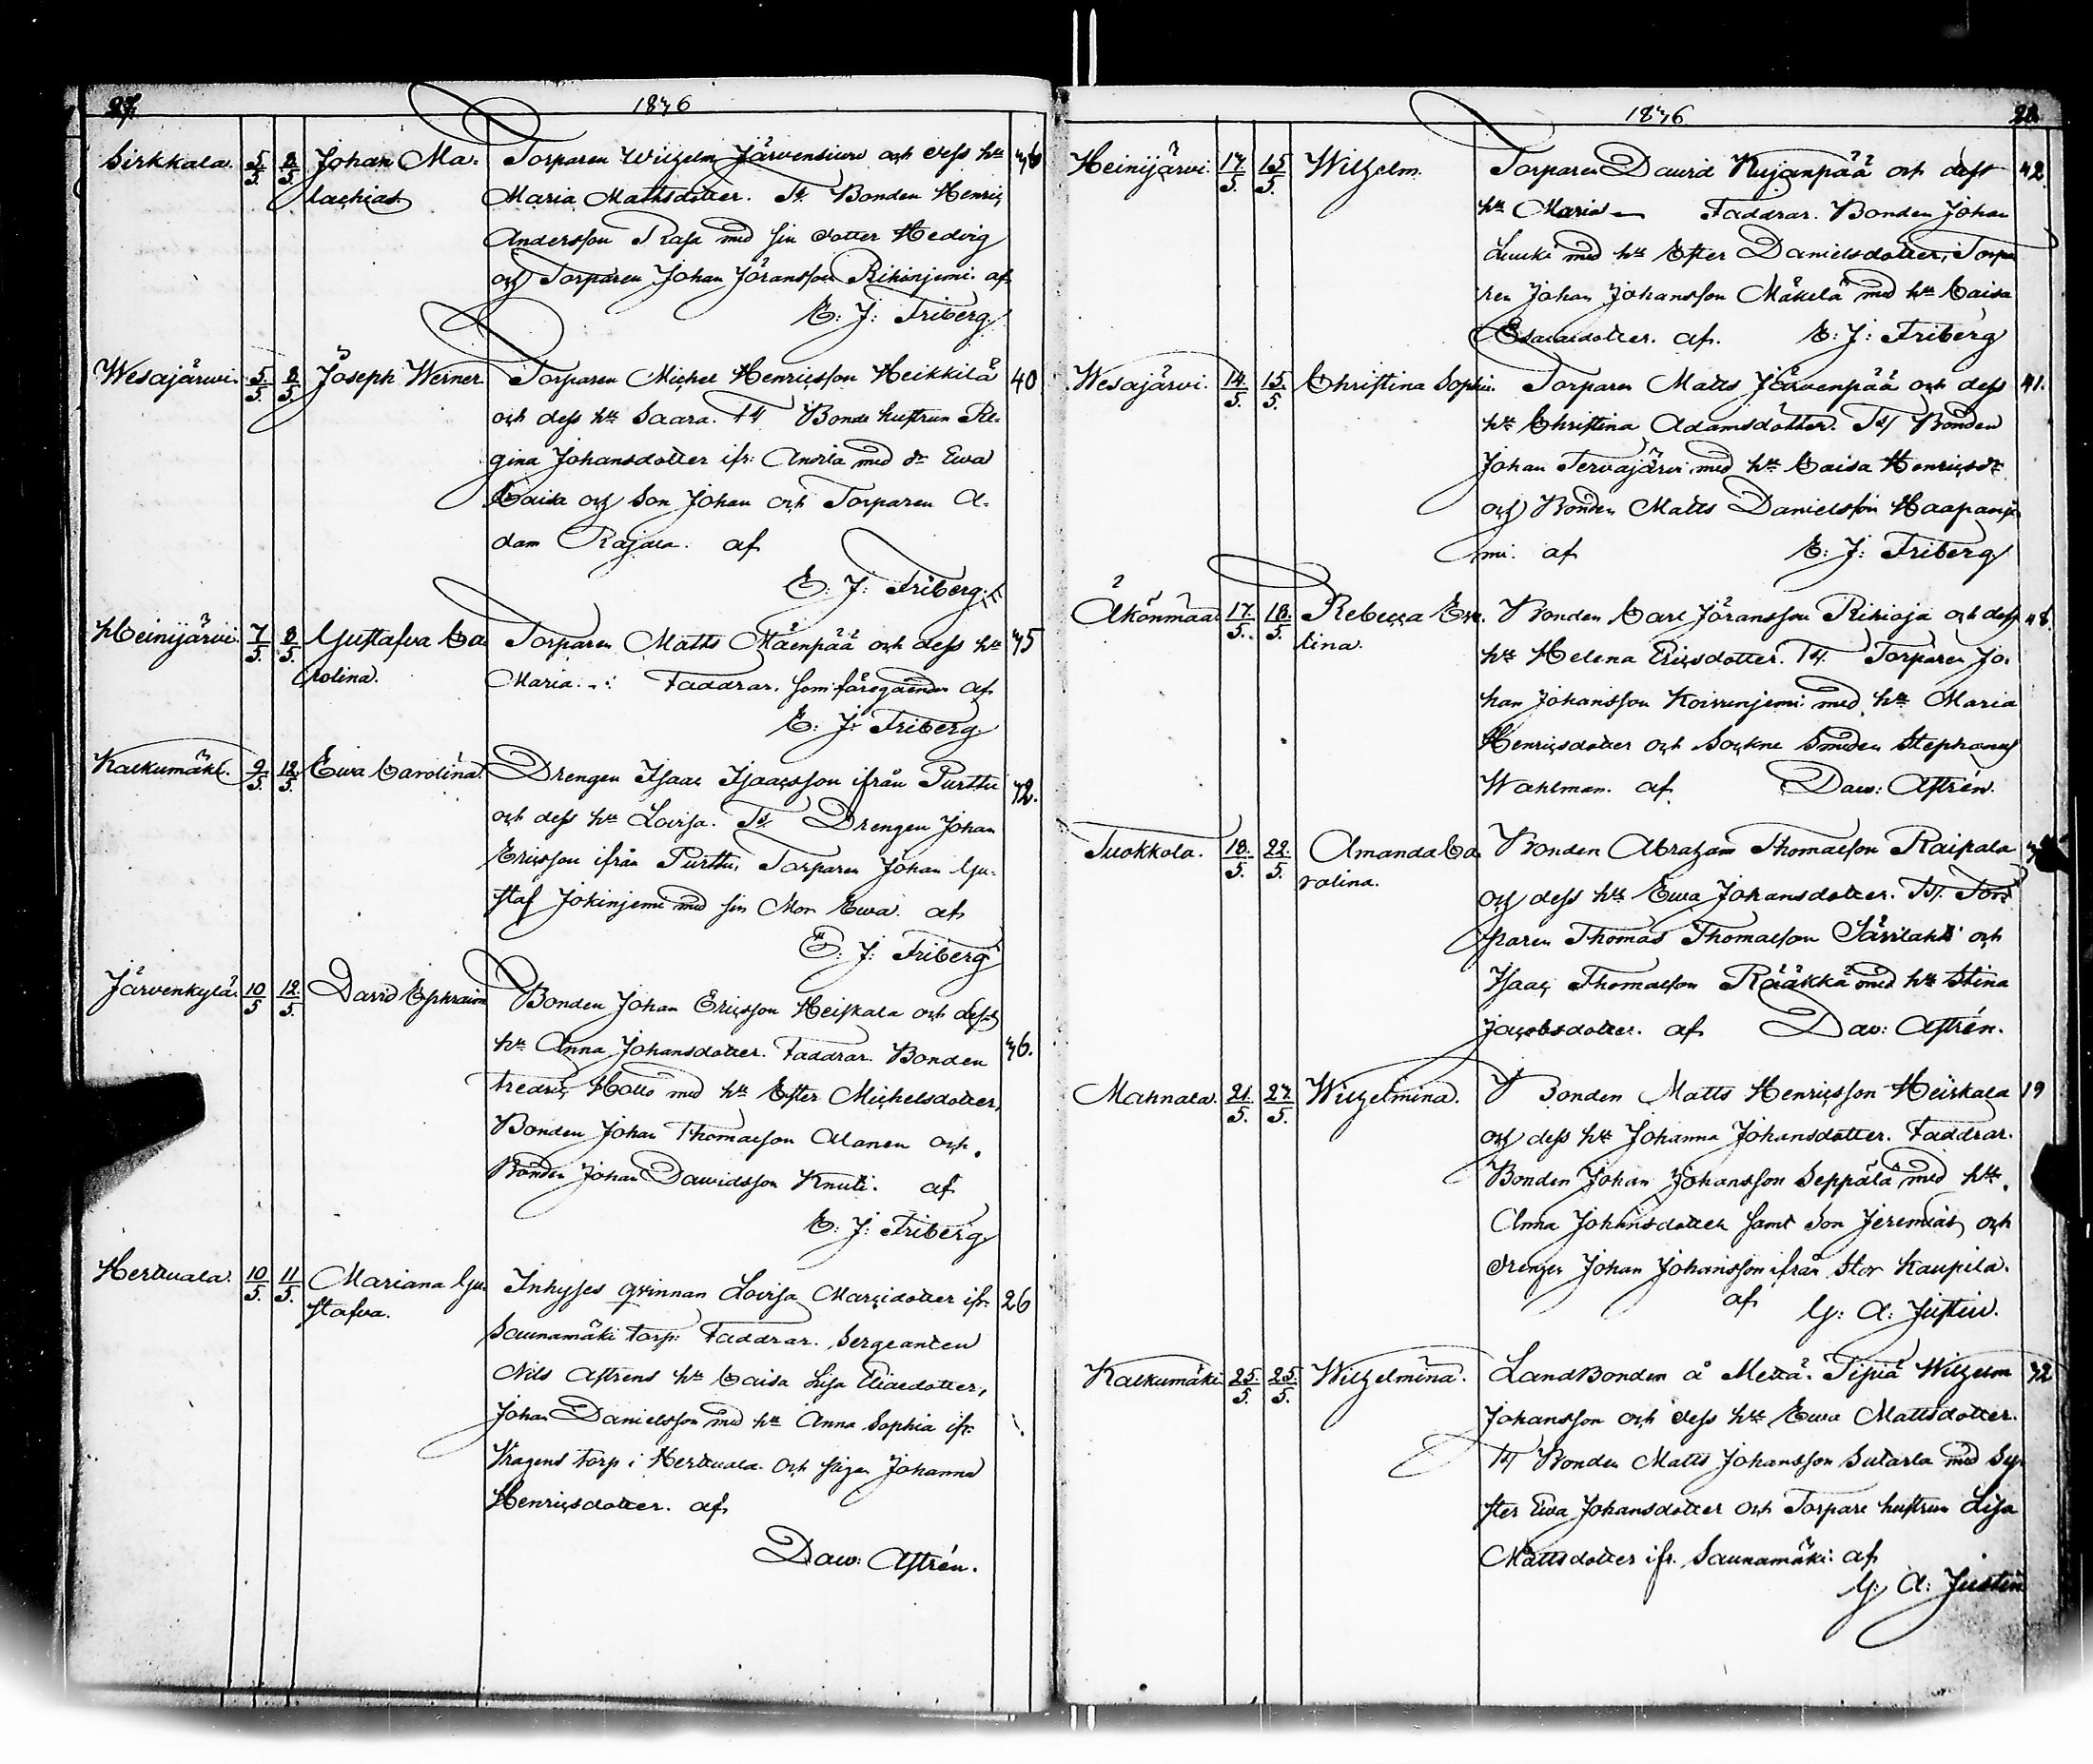 27.
1876
Sirkkala. 5/5. 8/5. Johan Ma- Torparen Wilhelm Järvensiwu och dess hu 76
lachias Maria Mathsdotter. Tst. Bonden Henric
Andersson Rasa med sin dotter Hedvig
och Torparen Johan Jöransson Rihinjemi. af
E: J: Friberg.
Wesajärwi. 5/5. 8/5. Joseph Werner Torparen Michel Henricsson Heikkilä 40
och dess hu Saara. Tst Bonde hustrun Re-
gina Johansdotter ifr: Anzila med dr Ewa
Caisa och Son Johan och Torparen A-
dam Rajala. af
E: J: Friberg.
Heinijärvi 7/5. 8/5. Gustafva Ca Torparen Matts Mäenpää och dess hu 75
rolina. Maria. Faddrar. som föregående af
E: J: Friberg
Kalkumäki. 9/5. 12/5. Ewa Carolina. Drengen Isaac Isaacsson ifrån Purttu 72.
och dess hu Lovisa. Tst. Drengen Johan
Ericsson ifrån Purttu, Torparen Johan Gu-
staf Jokinjemi med sin Mor Ewa. af
E: J: Friberg
Järvenkylä. 10/5 12/5. David Ephraim Bonden Johan Ericsson Heiskala och dess
hu Anna Johansdotter. Faddrar. Bonden 76.
Fredric Hollo med hu Ester Michelsdotter,
Bonden Johan Thomasson Alanen och
Bonden Johan Dawidsson Knuti. af
E: J: Friberg
Hertuala. 10/5. 11/5. Mariana Gu- Inhyses qvinnan Lovisa Marcidotter ifr: 26
stafva. Saunamäki torp: Faddrar. Sergeanten
Nils Astrens hu Caisa Lisa Eliaedotter,
Johan Danielsson med hu Anna Sophia ifr.
Kragens torp i Hertuala och pigan Johanna
Henricsdotter. af
Daw: Astrén.
1876.
28.
Heinijärvi. 17/5. 15/5. Wilhelm. Torparen David Kujanpää och dess 42.
hu Maria — Faddrar. Bonden Johan
Luuki med hu Ester Danielsdotter, Torpa
ren Johan Johansson Mäkelä med hu Caisa
Esaiaedotter. af. E: J: Friberg
Wesajärvi. 14/5. 15/5. Christina Sophia. Torparen Matts Järvenpää och dess 41.
hu Christina Adamsdotter. Tst Bonden
Johan Tervajärvi med hu Caisa Henricsdr
och Bonden Matts Danielsson Haapanje
mi. af E: J: Friberg
Äkönmaa. 17/5. 18/5. Rebecca Eve- Bonden Carl Jöransson Rihioja och dess 48.
lina. hu Helena Ericsdotter. Tst. Torparen Jo-
han Johansson Koivunjemi med hu Maria
Henricsdotter och Sockne Smeden Stephanus
Wahlman. af Daw: Astrén.
Tuokkola. 18/5. 22/5. Amanda Ca Bonden Abraham Thomasson Raipala
rolina. och dess hu Ewa Johansdotter. Tst. Tor-
paren Thomas Thomasson Särilahti och
Isaac Thomasson Rääkkä med hu Stina
Jacobsdotter. af Dav: Astrén.
Mahnala. 21/5. 27/5. Wilhelmina. Bonden Matts Henricsson Heiskala 19
och dess hu Johanna Johansdotter. Faddrar.
Bonden Johan Johansson Seppälä med hu
Anna Johansdotter samt Son Jeremias och
drengen Johan Johansson ifrån Stor Kaupila.
af G: A: Justin.
Kalkumäki 25/5. 25/5. Wilhelmina. LandBonden å Mettä-Pijpiä Wilhelm 72
Johansson och dess hu Ewa Mattsdotter.
Tst Bonden Matts Johansson Sutarla med Sy-
ster Ewa Johansdotter och Torpare hustrun Lisa
Mattsdotter ifr. Saunamäki: af
G: A: Justin